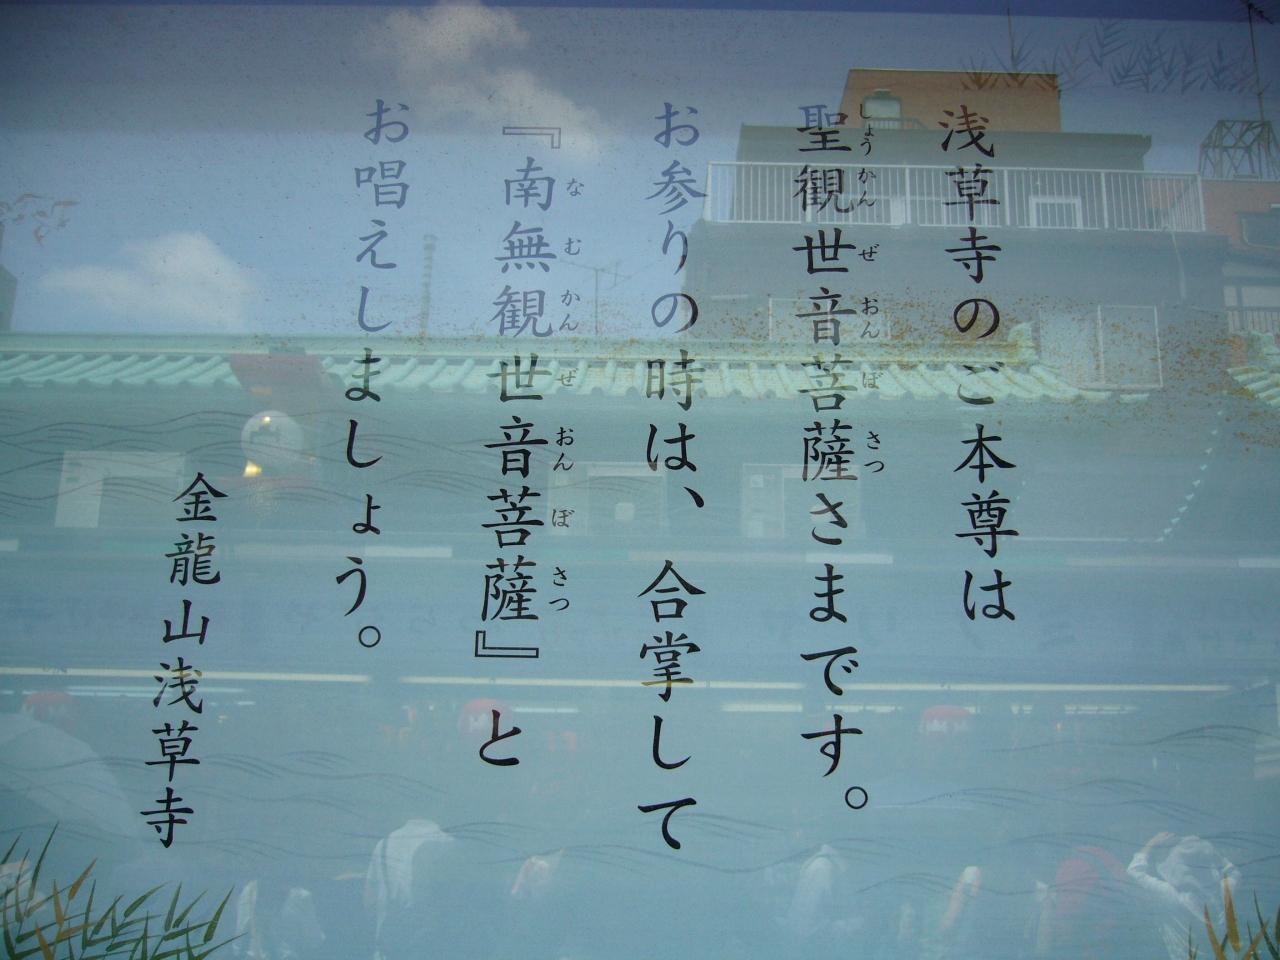 浅草寺のご本尊は
聖観世音菩薩さまです。
しょうかんぜおんぼさつ
お参りの時は、合掌して
『南無観世音菩薩』と
なむかんぜおんぼさつ
お唱えしましょう。
金龍山浅草寺